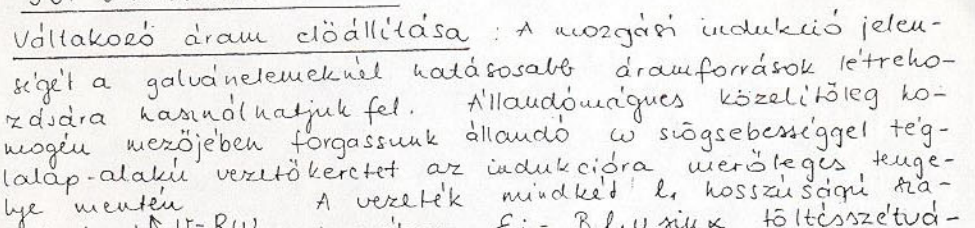 Váltakozó áram előállítása : A mozgási indukció jelen-
ségét a galvánelemeknél hatásosabb áramforrások létreho-
zására használhatjuk fel. Állandómágnes közelítőleg ho-
mogén mezőjében forgassunk állandó ω szögsebességgel tég-
lalap-alakú vezetőkeretet az indukcióra merőleges tenge-
lye mentén A vezeték mindkét l, hosszúságú sza-
v=Rω töltésszétvá-